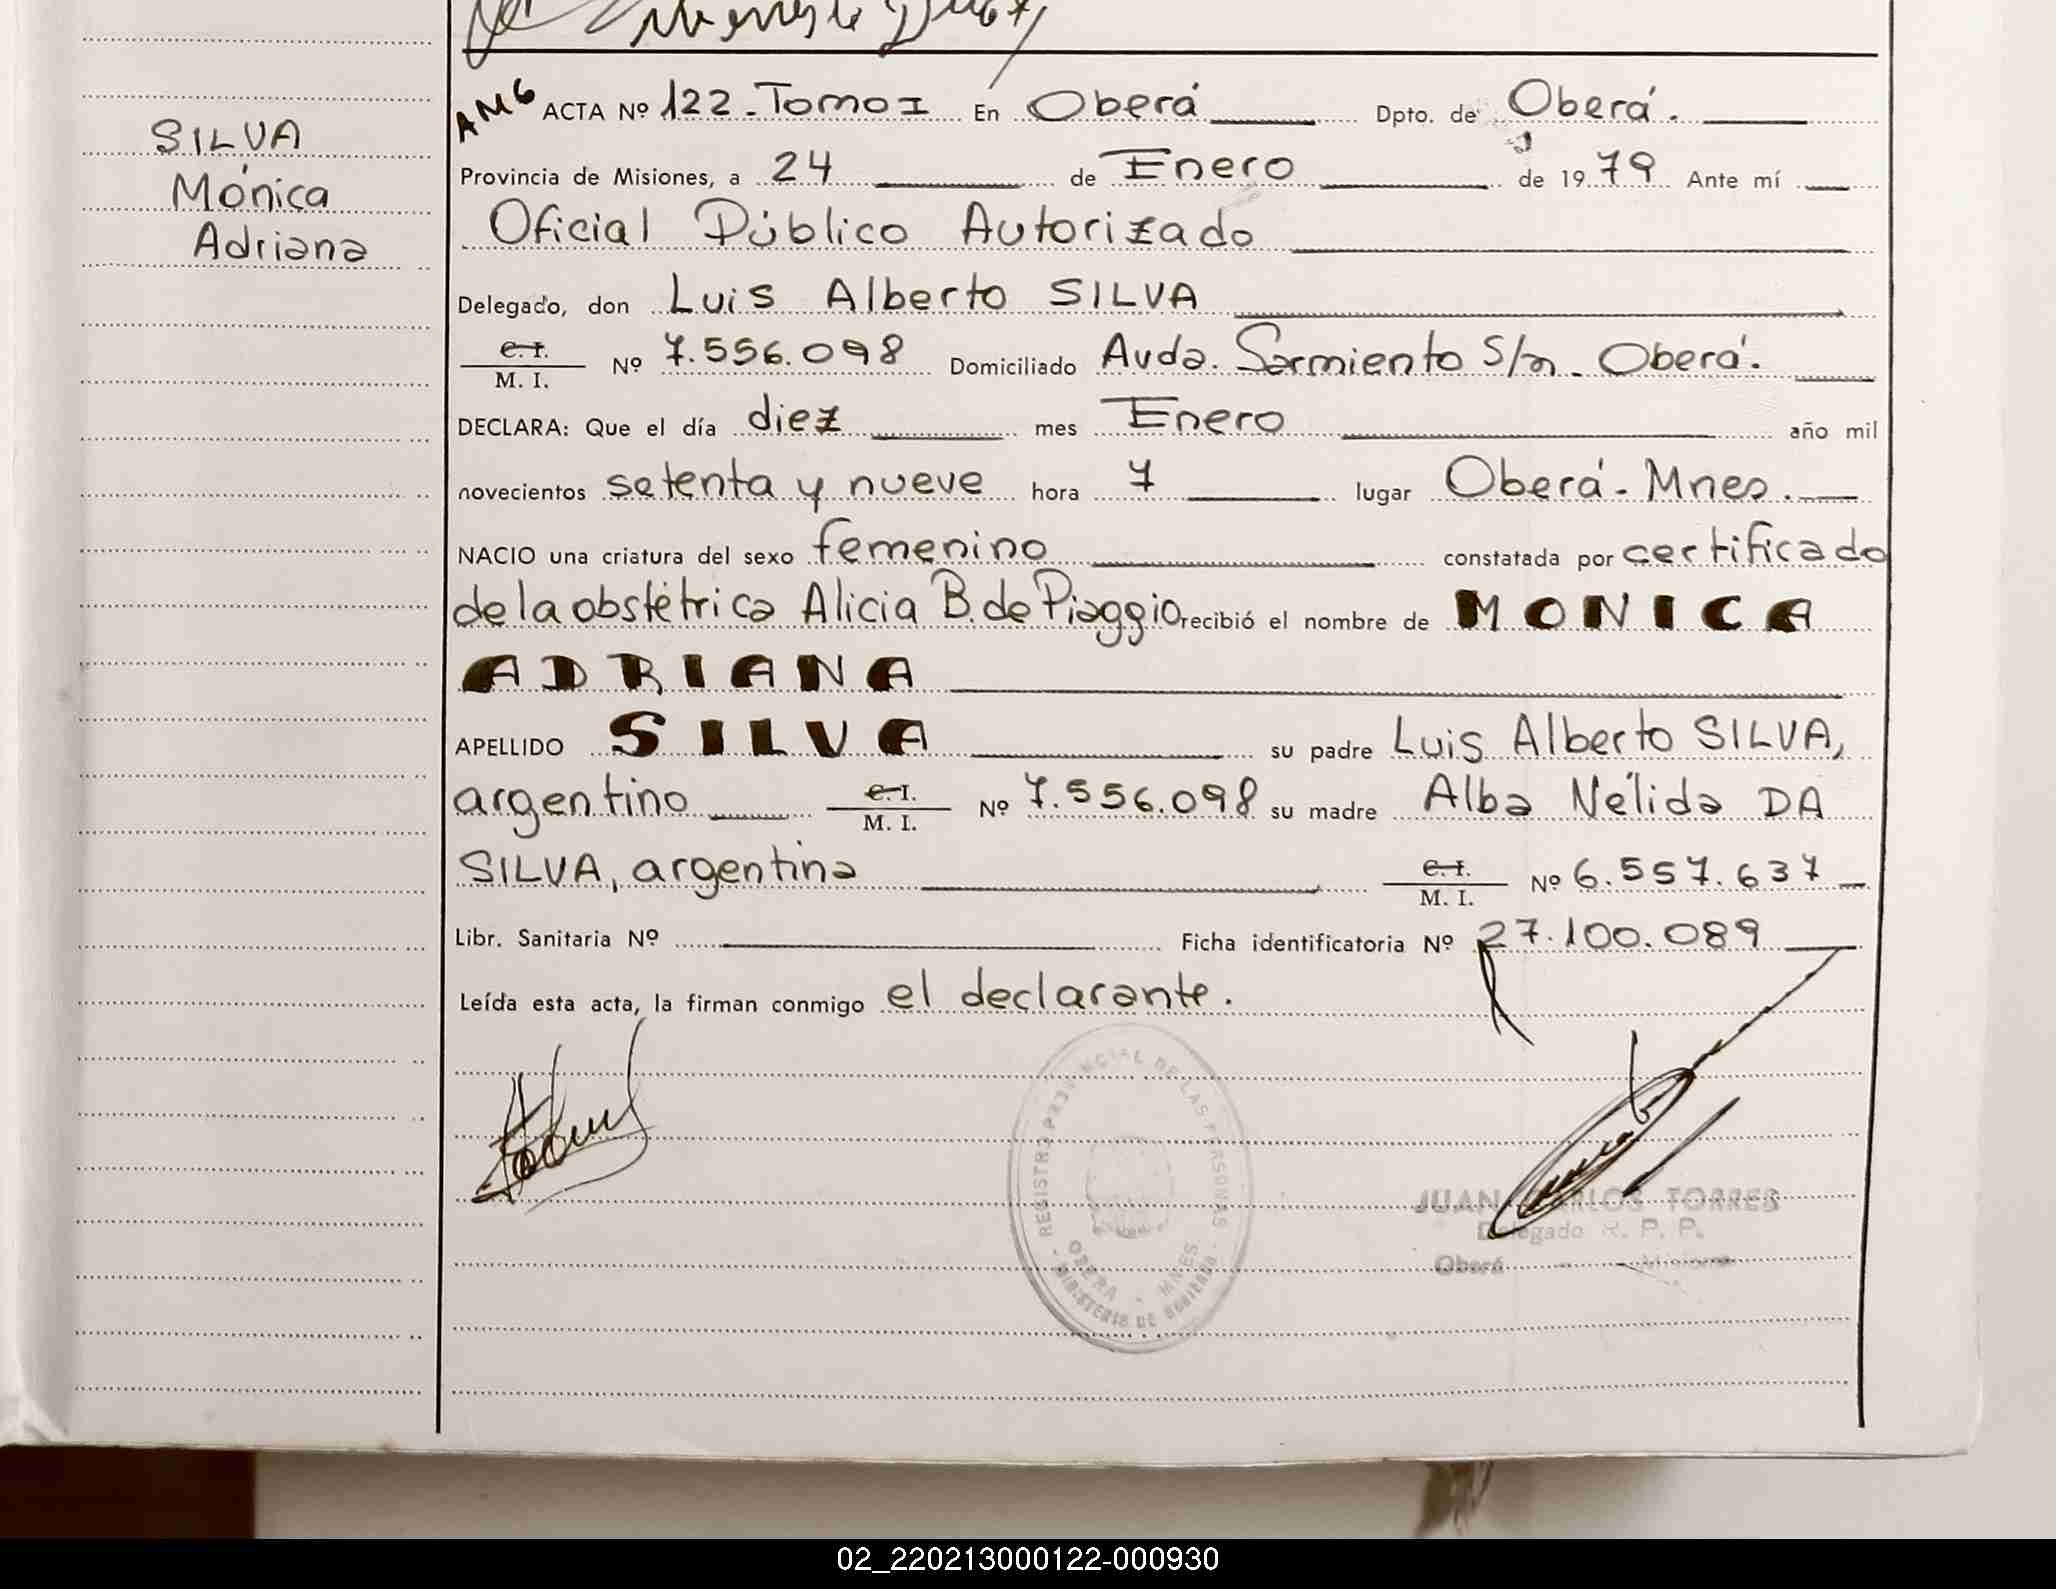 SILVA
Mónica
Adriana
AMG ACTA Nº 122 - Tomo I En Oberá Dpto. de Oberá.
Provincia de Misiones, a 24 de Enero de 1979 Ante mí
Oficial Público Autorizado
Delegado, don Luis Alberto SILVA
C. I.
M. I. Nº 7.556.098 Domiciliado Avda. Sarmiento S/n - Oberá.
DECLARA: Que el día diez mes Enero año mil
novecientos setenta y nueve hora 7 lugar Oberá - Mnes.
NACIO una criatura del sexo femenino constatada por certificado
de la obstétrica Alicia B. de Piaggio recibió el nombre de MONICA
ADRIANA
APELLIDO SILVA su padre Luis Alberto SILVA,
argentino C. I. M. I. Nº 7.556.098 su madre Alba Nélida DA
SILVA, argentina C. I. M. I. Nº 6.557.637
Libr. Sanitaria Nº Ficha identificatoria Nº 27.100.089
Leída esta acta, la firman conmigo el declarante.
REGISTRO PROVINCIAL DE LAS PERSONAS
OBERA - MNES
MINISTERIO DE GOBIERNO
JUAN CARLOS TORRES
Delegado R. P. P.
Oberá - Misiones
02_220213000122-000930